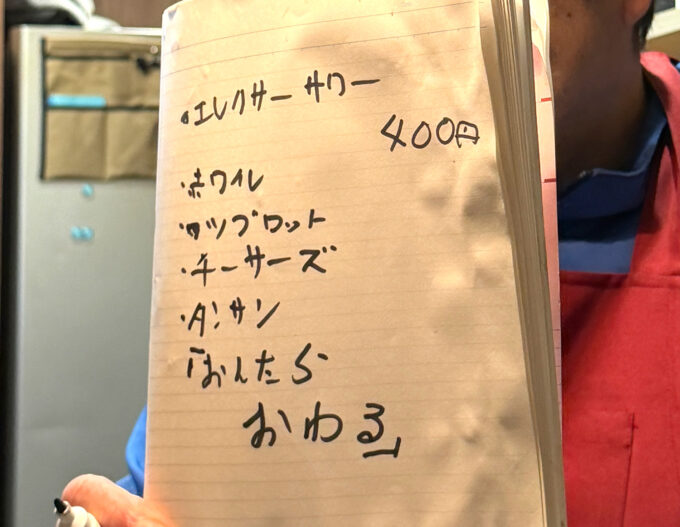 ・エレクサーサワー
400円
・ホワイル
・ワップロット
・チーサーズ
・タンサン
「おんたら
おわる」